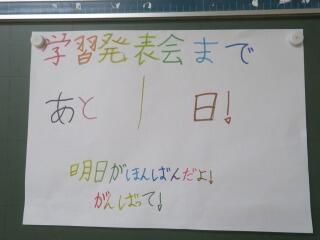 学習発表会まで
あと 1 日!
明日がほんばんだよ!
がんばって!